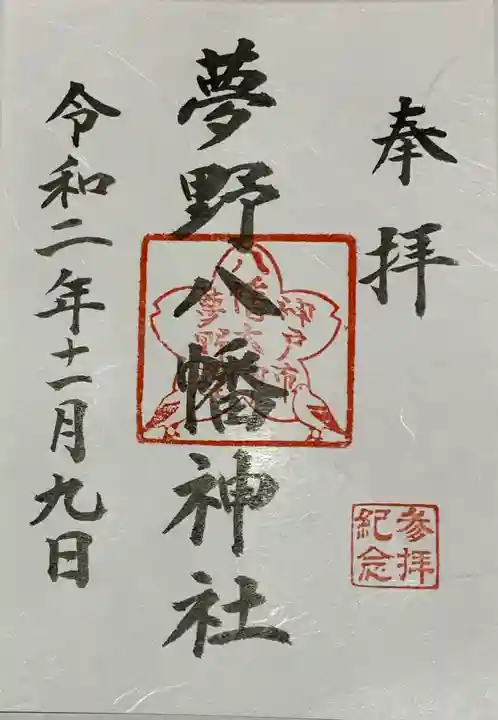 奉拝
夢野八幡神社
令和二年十一月九日
神戸市
夢野
参拝
紀念